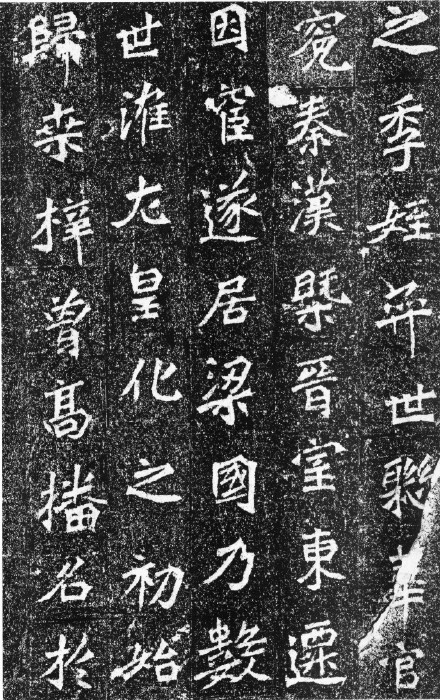 之季姪并世聯華官
冠秦漢暨晉室東遷
因宦遂居梁國乃數
世淮左皇化之初始
歸桒梓曾髙播名於